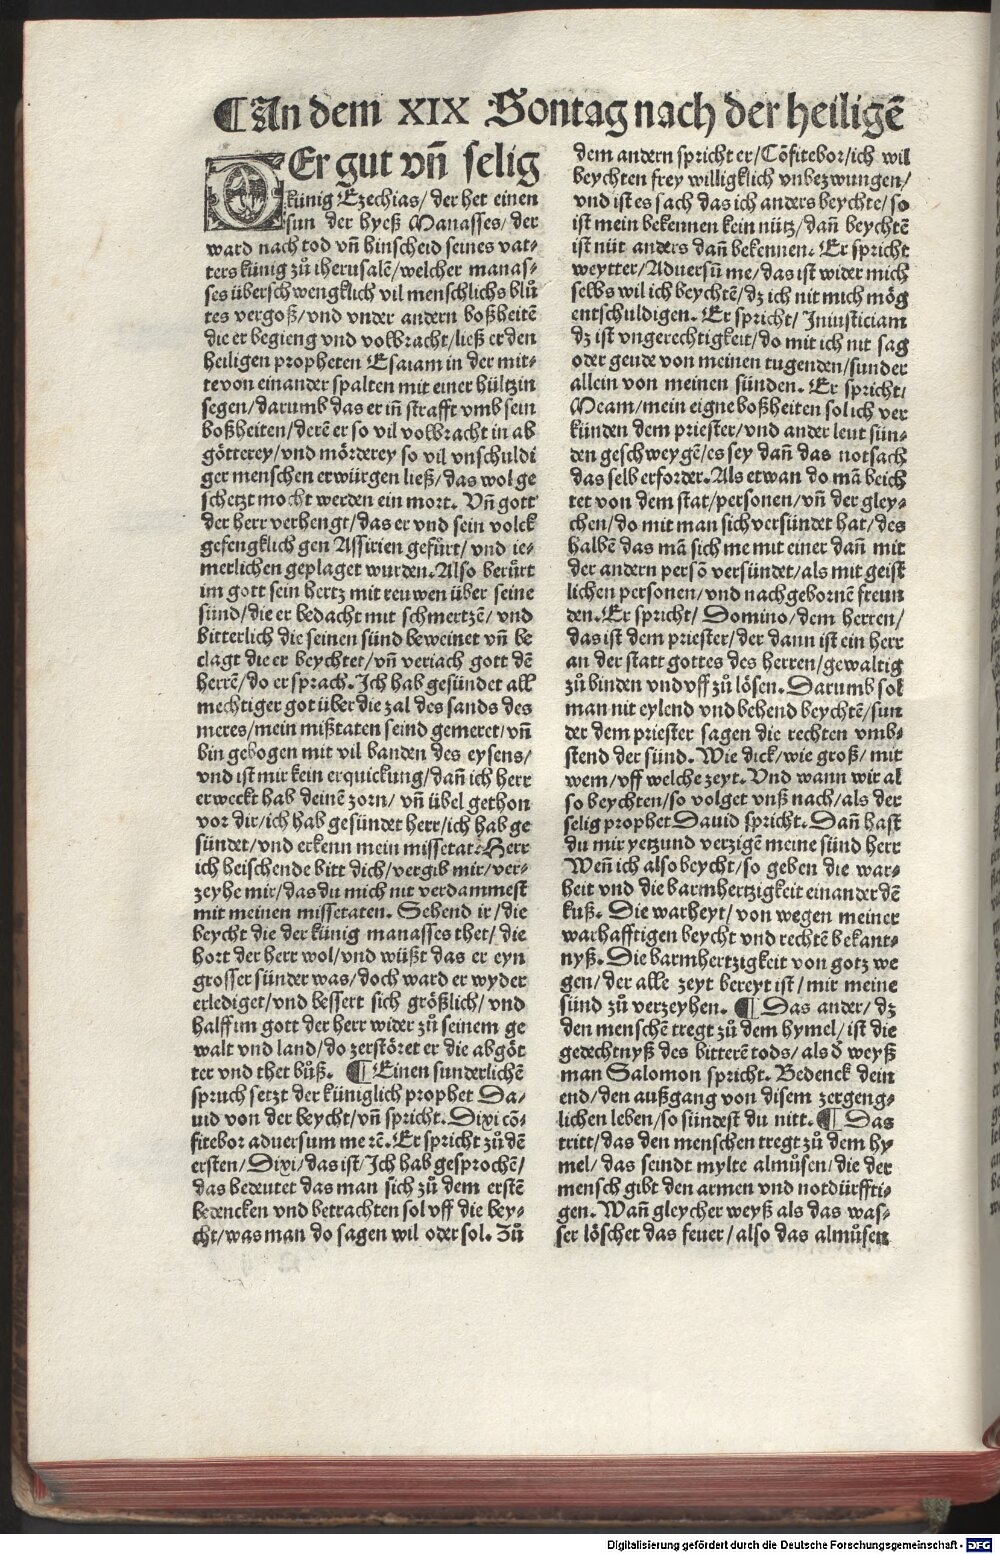 ¶An dem XIX Sontag nach der heiligē
DEr gut vñ selig
künig Ezechias/ der het einen
sun der hyeß Manasses/ der
ward nach tod vñ hinscheid seines vat⸗
ters künig zů iherusalē/welcher manas⸗
ses überschwengklich vil menschlichs blů
tes vergoß/vnd vnder andern boßheitē
die er begieng vnd volbracht/ließ er den
heiligen propheten Esaiam in der mit⸗
te von einander spalten mit einer hültzin
segen/darumb das er in̄ strafft vmb sein
boßheiten/derē er so vil volbracht in ab
götterey/vnd mörderey so vil vnschuldi
ger menschen erwürgen ließ/das wol ge
schetzt mocht werden ein mort. Vñ gott
der herr verhengt/das er vnd sein volck
gefengklich gen Assirien gefůrt/vnd ie⸗
merlichen geplaget wurden. Also berůrt
im gott sein hertz mit reuwen über seine
sünd/die er bedacht mit schmertzē/ vnd
bitterlich die seinen sünd beweinet vñ be
clagt die er beychtet/vñ veriach gott dē
herrē/do er sprach. Ich hab gesündet all
mechtiger got über die zal des sands des
meres/mein mißtaten seind gemeret/vñ
bin gebogen mit vil banden des eysens/
vnd ist mir kein erquickung/dañ ich herr
erweckt hab deinē zorn/ vñ übel gethon
vor dir/ich hab gesündet herr/ich hab ge
sündet/vnd erkenn mein missetat. Herr
ich heischende bitt dich/vergib mir/ver⸗
zeyhe mir/das du mich nit verdammest
mit meinen missetaten. Sehend ir/die
beycht die der künig manasses thet/ die
hort der herr wol/vnd wüßt das er eyn
grosser sünder was/doch ward er wyder
erlediget/vnd bessert sich größlich/ vnd
halff im gott der herr wider zů seinem ge
walt vnd land/do zerstöret er die abgöt
ter vnd thet bůß. ¶Einen sunderlichē
spruch setzt der küniglich prophet Da⸗
uid von der beycht/vñ spricht. Dixi cō⸗
fitebor aduersum me rē. Er spricht zů dē
ersten/Dixi/das ist/Ich hab gesprochē/
das bedeutet das man sich zů dem erstē
bedencken vnd betrachten sol vff die bey⸗
cht/was man do sagen wil oder sol. Zů
dem andern spricht er/Cōfitebor/ich wil
beychten frey willigklich vnbezwungen/
vnd ist es sach das ich anders beychte/so
ist mein bekennen kein nütz/dañ beychtē
ist nüt anders dañ bekennen. Er spricht
weytter/Aduersū me/das ist wider mich
selbs wil ich beychtē/dz ich nit mich mög
entschuldigen. Er spricht/ Iniusticiam
dz ist vngerechtigkeit/do mit ich nit sag
oder geude von meinen tugenden/sunder
allein von meinen sünden. Er spricht/
Meam/mein eigne boßheiten sol ich ver
künden dem priester/vnd ander leut sün⸗
den geschweygē/es sey dañ das notsach
das selb erforder. Als etwan do mā beich
tet von dem stat/personen/vñ der gley⸗
chen/do mit man sich versündet hat/des
halbē das mā sich me mit einer dañ mit
der andern persō versündet/als mit geist
lichen personen/vnd nachgebornē freun
den. Er spricht/ Domino/dem herren/
das ist dem priester/der dann ist ein herr
an der statt gottes des herren/gewaltig
zů binden vnd vff zů lösen. Darumb sol
man nit eylend vnd behend beychtē/sun
der dem priester sagen die rechten vmb⸗
stend der sünd. Wie dick/wie groß/ mit
wem/vff welche zeyt. Vnd wann wir al
so beychten/so volget vnß nach/als der
selig prophet Dauid spricht. Dañ hast
du mir yetzund verzigē meine sünd herr
Weñ ich also beycht/so geben die war⸗
heit vnd die barmhertzigkeit einander dē
kuß. Die warheyt/ von wegen meiner
warhafftigen beycht vnd rechtē bekant⸗
nyß. Die barmhertzigkeit von gotz we
gen/der alle zeyt bereyt ist/mir meine
sünd zů verzeyhen. ¶Das ander/dz
den menschē tregt zů dem hymel/ist die
gedechtnyß des bitterē tods/als d̄ weyß
man Salomon spricht. Bedenck dein
end/den außgang von disem zergeng⸗
lichen leben/so sündest du nitt. ¶Das
tritt/das den menschen tregt zů dem hy
mel/ das seindt mylte almůsen/die der
mensch gibt den armen vnd notdürffti⸗
gen. Wañ gleycher weyß als das was⸗
ser löschet das feuer/also das almůsen
Digitalisierung gefördert durch die Deutsche Forschungsgemeinschaft - DFG